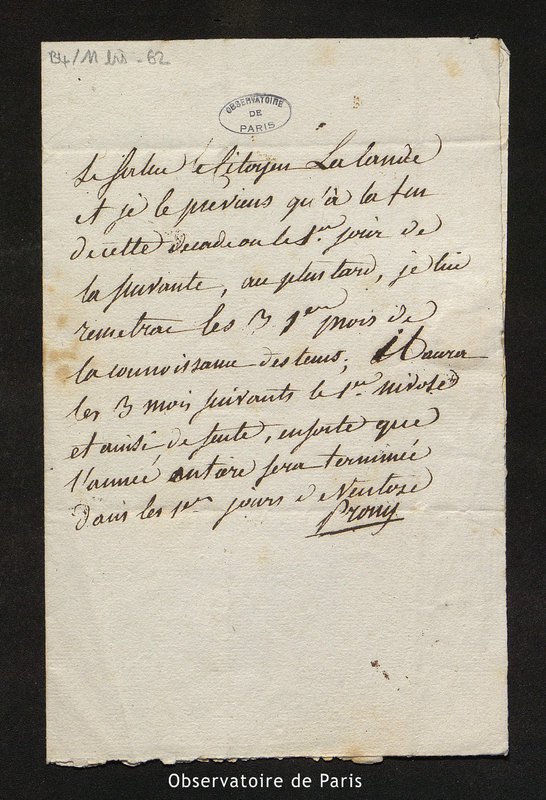 B4/11 bis - 62
OBSERVATOIRE
DE
PARIS
Je salue le Citoyen La lande
et je le previens qu'à la fin
de cette decade ou le 1er jour de
la suivante, au plus tard, je lui
remetrai les 3 1ers mois de
la connoissance des tems; il aura
les 3 mois suivants le 1er nivose
et ainsi de suite, ensorte que
l'année entiere sera terminée
dans les 1ers jours de Ventose
Prony
Observatoire de Paris